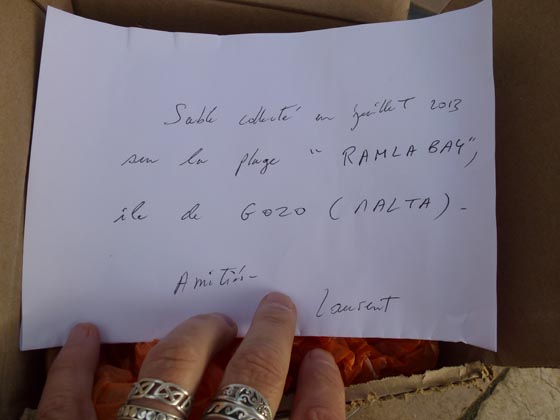 Sable collecté en juillet 2013
sur la plage "RAMLA BAY",
île de GOZO (MALTA).
Amitiés-
Laurent